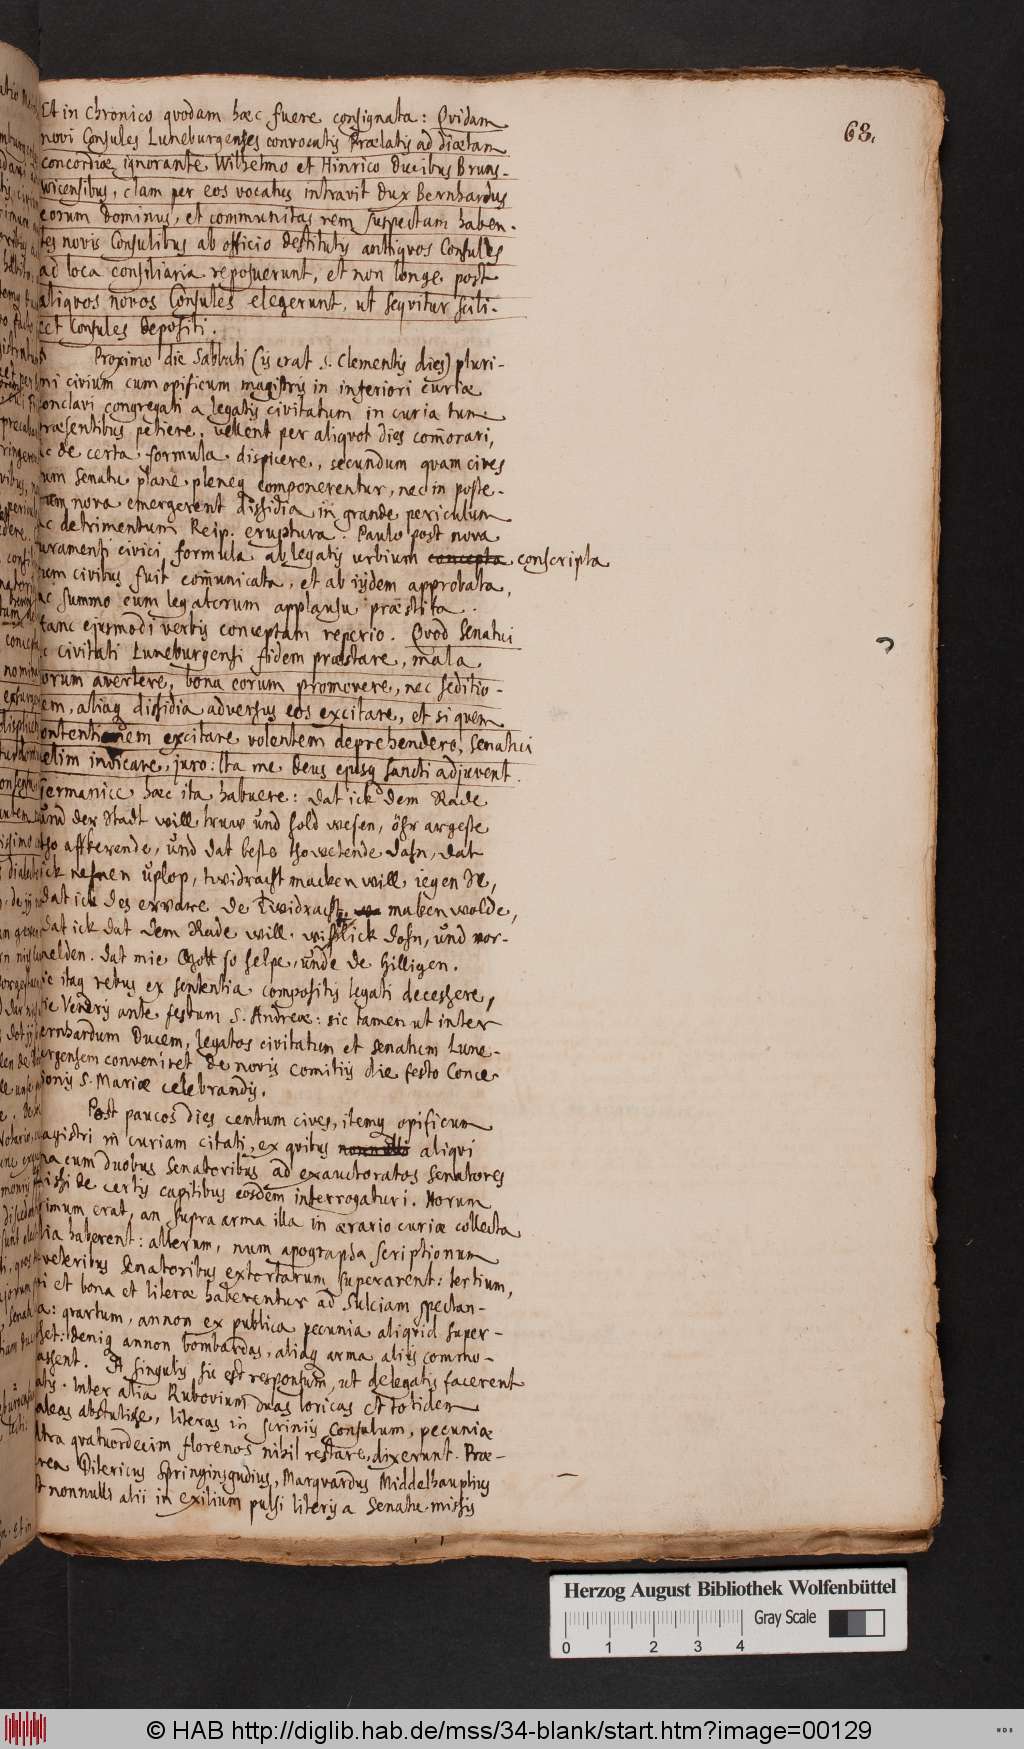 63.
Et in Chronico quodam hæc fuere consignata: Quidam
novi Consules Luneburgenses convocatis Prælatis ad diætam
concordiæ ignorante Wilhelmo et Hinrico Ducibus Bruns-
vicensibus, clam per eos vocatus intravit Dux Bernhardus
eorum Dominus, et communitas rem suspectam haben-
tes novis Consulibus ab officio destitutis antiquos Consules
ad loca consiliaria reposuerunt, et non longe post
aliquos novos Consules elegerunt, ut sequitur scili-
cet Consules depositi.
Proximo die Sabbati (is erat S. Clementis dies) pluri-
mi civium cum opificum magistris in inferiori curiæ
conclavi congregati a legatis civitatum in curia tum
præsentibus petiere, vellent per aliquot dies com̄orari,
ac de certa formula dispicere, secundum quam cives
cum Senatu plane pleneq componerentur, nec in poste-
rum nova emergerent dissidia in grande periculum
ac detrimentum Reip. eruptura. Paulo post nova
juramenti civici formula ab legatis urbium concepta conscripta
cum civibus fuit com̄unicata, et ab iisdem approbata,
ac summo cum legatorum applausu præstita.
Hanc ejusmodi verbis conceptam reperio. Quod Senatui
ac civitati Luneburgensi fidem præstare, mala
eorum avertere, bona eorum promovere, nec seditio-
nem, aliaq dissidia adversus eos excitare, et si quem
contentionem excitare volentem deprehendero, Senatui
velim indicare, juro: Ita me Deus ejusq sancti adjuvent.
Germanice hæc ita habuere: Dat ick dem Rade
und der Stadt will truw und hold wesen, öhr argeste
tho afkerende, und dat beste thowetende dohn, dat
ick nehnen uplop, twidracht macken will jegen Se,
dat ick des ervare de Twidracht maken wolde,
dat ick dat dem Rade will wißlick dohn, und vor-
melden. Dat mie Gott so helpe, unde de Hilligen.
Sic itaq rebus ex sententia compositis legati decessere,
die Veneris ante festum S. Andreæ: sic tamen ut inter
Bernhardum Ducem, legatos civitatum et Senatum Lune-
burgensem conveniret de novis comitiis die festo Conce-
ptionis S. Mariæ celebrandis.
Post paucos dies centum cives, itemq opificum
magistri in curiam citati, ex quibus nonnulli aliqui
una cum duobus Senatoribus ad exauctoratos Senatores
missi de certis capitibus eosdem interrogaturi. Horum
primum erat, an supra arma illa in ærario curiæ collecta
alia haberent: alterum, num apographa scriptionum
a veteribus Senatoribus extortarum superarent: tertium,
si et bona et literæ haberentur ad Sulciam spectan-
tia: quartum, annon ex publica pecunia aliquid super-
esset: deniq annon bombardas, aliaq arma aliis commo-
dassent. A singulis sic est responsum, ut delegatis facerent
satis. Inter alia Rubovium duas loricas et totidem
galeas abstulisse, literas in scriniis Consulum, pecuniæ
ultra quatuordecim florenos nihil restare, dixerunt. Præ-
terea Ditericus Springinsgudius, Marquardus Middelhauptius
et nonnulli alii in exilium pulsi literis a Senatu missis
Herzog August Bibliothek Wolfenbüttel
0 1 2 3 4 Gray Scale
© HAB http://diglib.hab.de/mss/34-blank/start.htm?image=00129